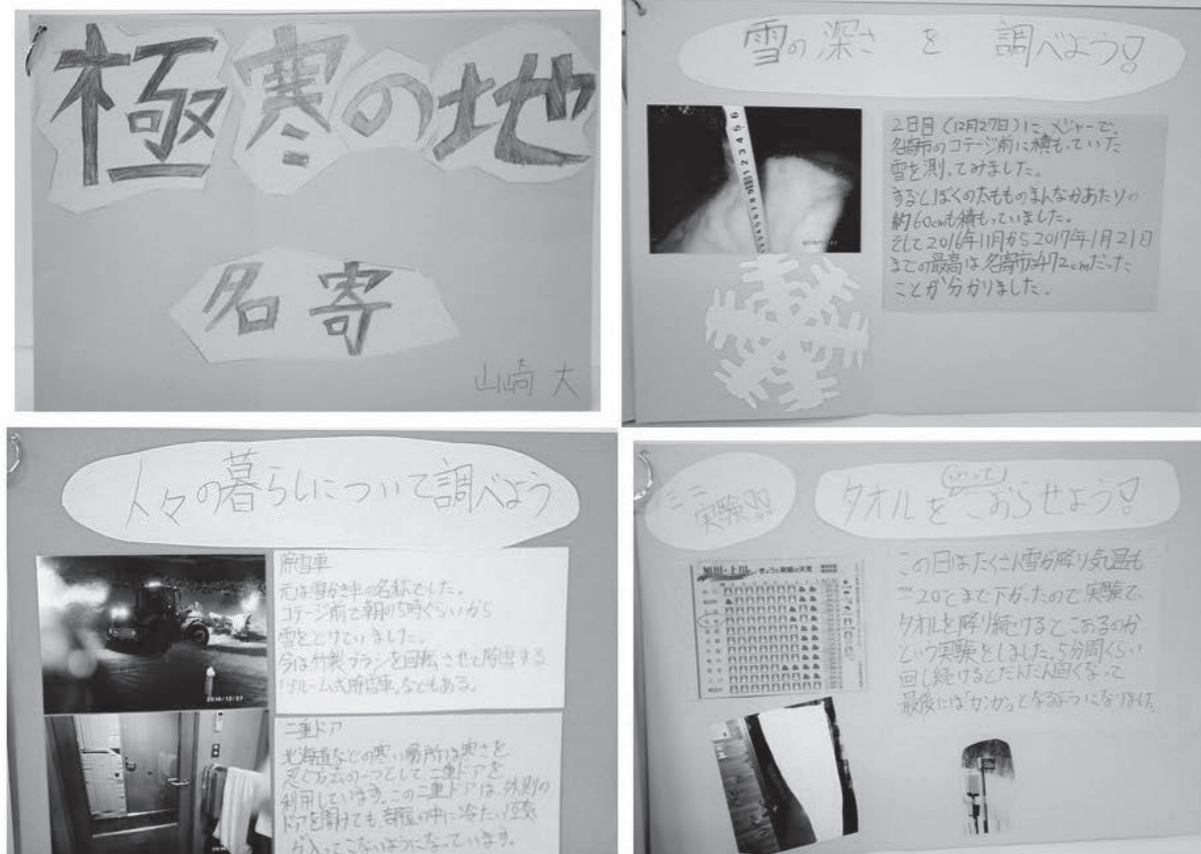 極寒の地
名寄
山崎 大
雪の深さ を 調べよう!
2日目(12月27日)に、メジャーで、
名寄市のコテージ前に積もっていた
雪を測ってみました。
するとぼくの太もものまんなかあたりの
約60cmも積もっていました。
そして2016年11月から2017年1月21日
までの最高は名寄市は472cmだった
ことが分かりました。
人々の暮らしについて調べよう
除雪車
元は雪かき車の名称でした。
コテージ前で朝の5時くらいから
雪をとりていました。
今は竹製ブラシを回転させて除雪する
「ブルーム式除雪車」などもある。
2016/12/27
二重ドア
北海道などの寒い場所は寒さを
忍ぐ方法の一つとして、二重ドアを
利用しています。この二重ドアは、外側の
ドアを開けても、部屋の中に冷たい空気
が入ってこないようになっています。
ミニ
実験!!
タオルを(ふって)こおらせよう!
旭川・上川
きょうと の天気
この日はたくさん雪が降り気温も
-20℃まで下がったので、実験で、
タオルを降り続けるとこおるのか
という実験をしました。5分間くらい
回し続けるとだんだん固くなって
最後には「カンカン」となるようになりました